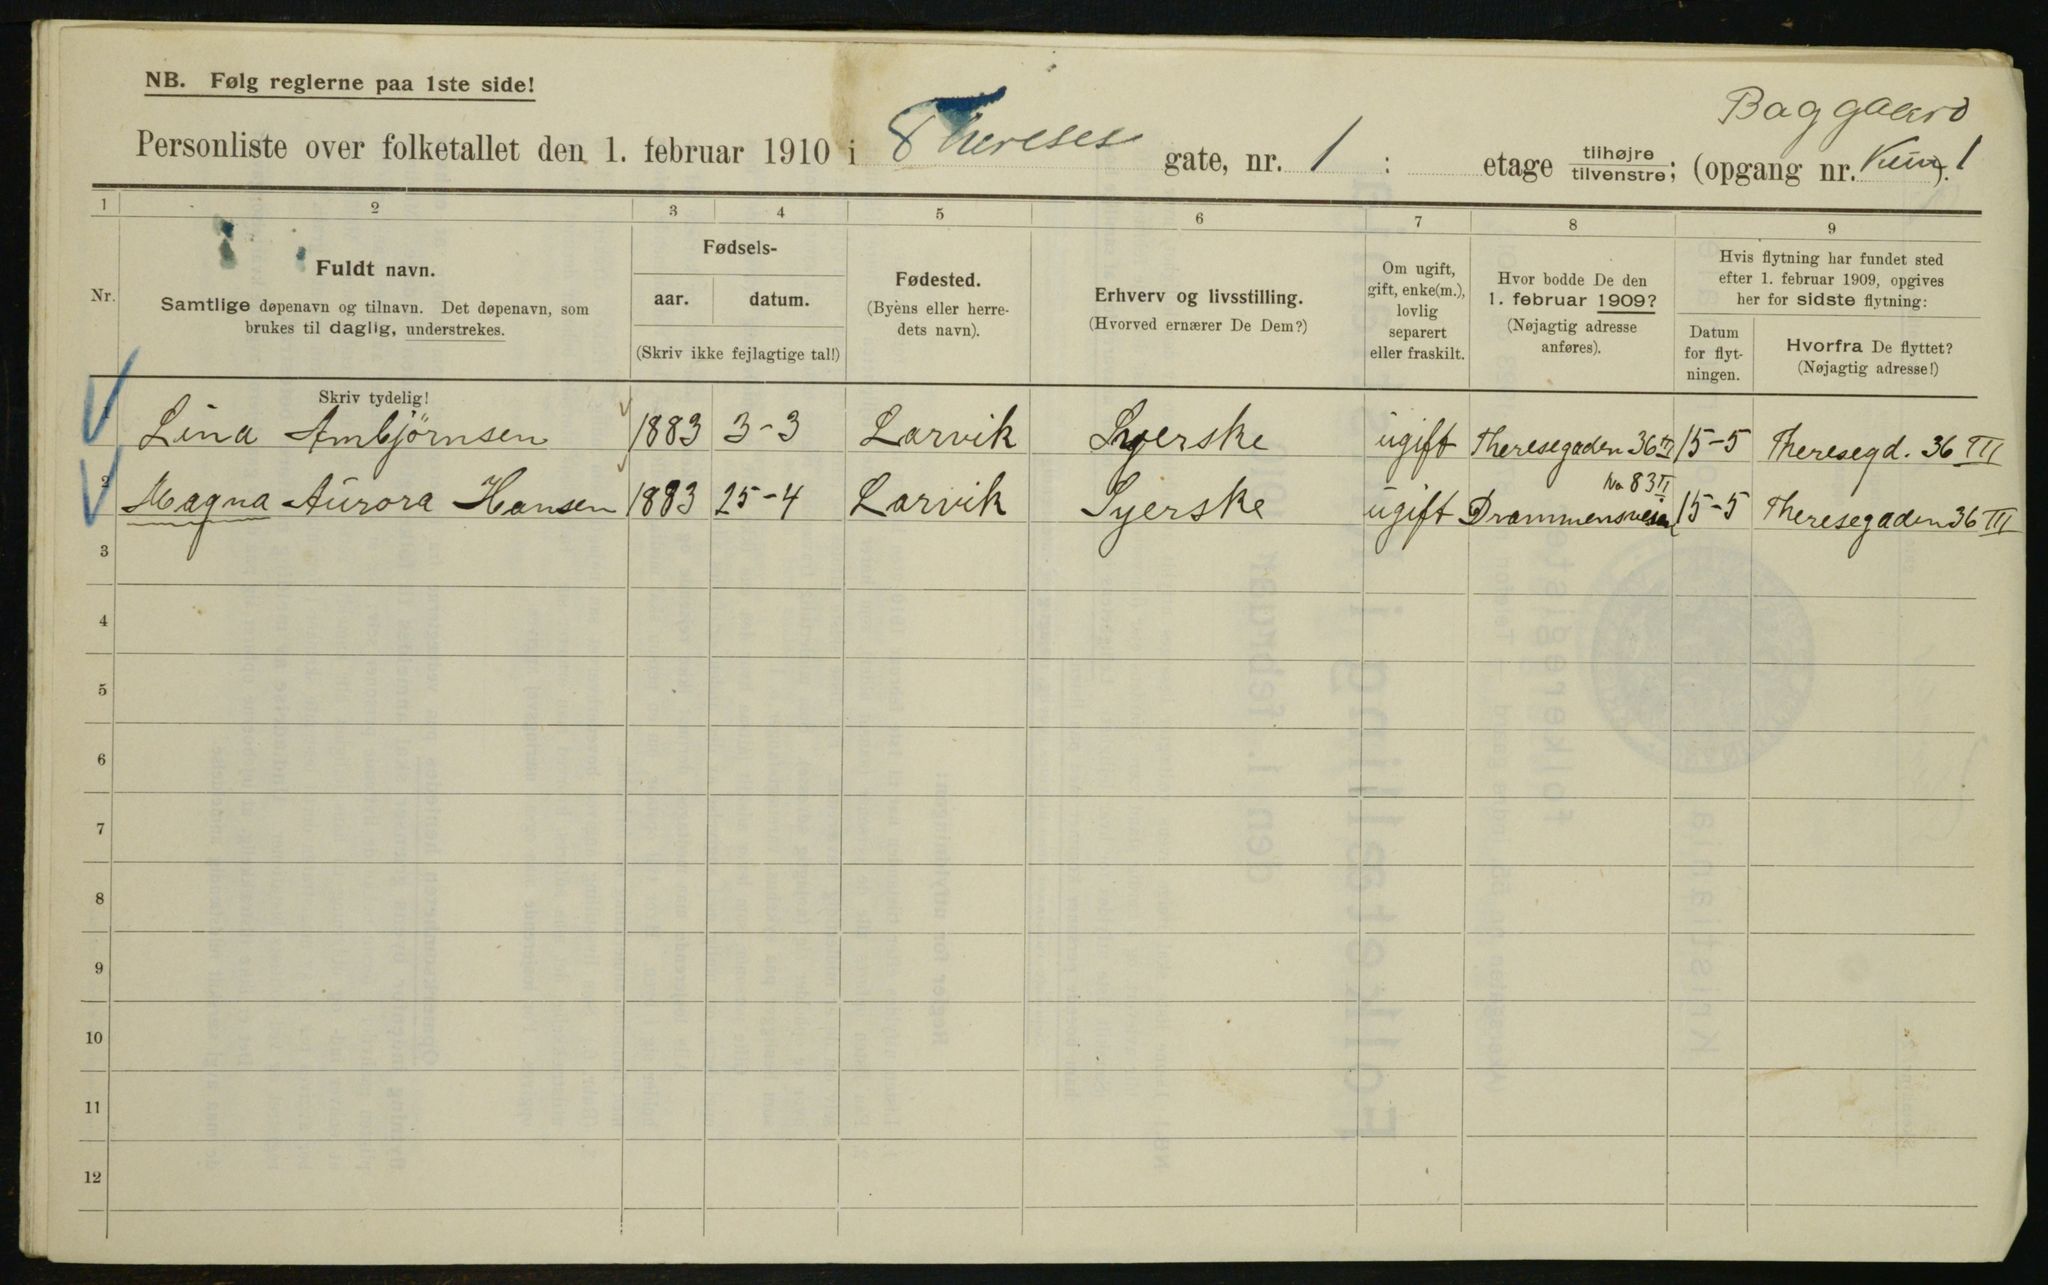 NB. Følg reglerne paa 1ste side!
Baggaard
Personliste over folketallet den 1. februar 1910 i Thereses gate, nr. 1 : etage tilhøjre/tilvenstre; (opgang nr. ). 1
1 2 3 4 5 6 7 8 9
Nr.
Fuldt navn.
Samtlige døpenavn og tilnavn. Det døpenavn, som
brukes til daglig, understrekes.
Skriv tydelig!
Fødsels-
aar. datum.
(Skriv ikke fejlagtige tal!)
Fødested.
(Byens eller herre-
dets navn).
Erhverv og livsstilling.
(Hvorved ernærer De Dem?)
Om ugift,
gift, enke(m.),
lovlig
separert
eller fraskilt.
Hvor bodde De den
1. februar 1909?
(Nøjagtig adresse
anføres).
Hvis flytning har fundet sted
efter 1. februar 1909, opgives
her for sidste flytning:
Datum
for flyt-
ningen.
Hvorfra De flyttet?
(Nøjagtig adresse!)
1 Lina Ambjørnsen 1883 3-3 Larvik Syerske ugift Theresegaden 36 III 15-5 Theresegd. 36 III
No 83 II
2 Magna Aurora Hansen 1883 25-4 Larvik Syerske ugift Drammensveien 15-5 Theresegaden 36 III
3
4
5
6
7
8
9
10
11
12